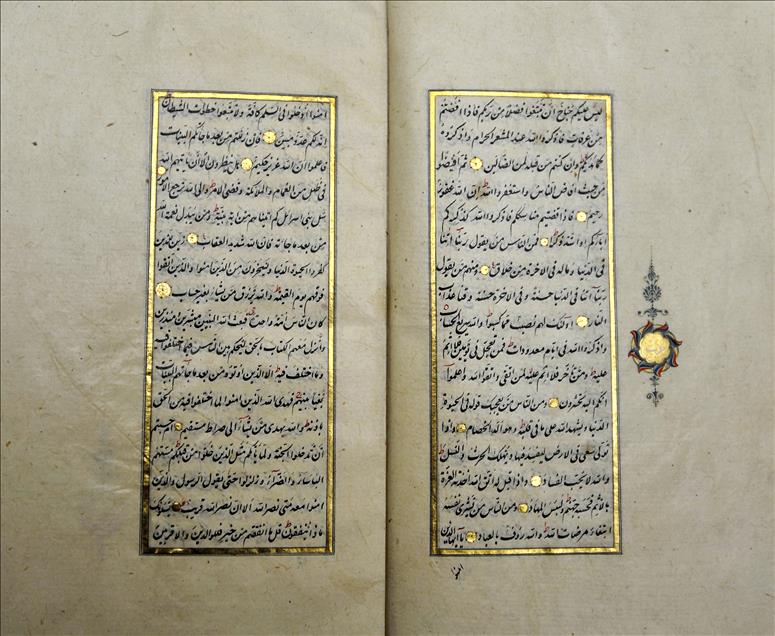 ليس عليكم جناح ان تبتغوا فضلا من ربكم فاذا افضتم
من عرفات فاذكروا الله عند المشعر الحرام واذكروه
كما هديكم وان كنتم من قبله لمن الضالين ثم افيضوا
من حيث افاض الناس واستغفروا الله ان الله غفور
رحيم فاذا قضيتم مناسككم فاذكروا الله كذكركم
اباءكم او اشد ذكرا فمن الناس من يقول ربنا اتنا
في الدنيا وماله في الاخرة من خلاق ومنهم من يقول
ربنا اتنا في الدنيا حسنة وفي الاخرة حسنة وقنا عذاب
النار اولئك لهم نصيب مما كسبوا والله سريع الحساب
واذكروا الله في ايام معدودات فمن تعجل في يومين فلا اثم
عليه ومن تاخر فلا اثم عليه لمن اتقى واتقوا الله واعلموا
انكم اليه تحشرون ومن الناس من يعجبك قوله في الحيوة
الدنيا ويشهد الله على ما في قلبه وهو الد الخصام واذا
تولى سعى في الارض ليفسد فيها ويهلك الحرث والنسل
والله لا يحب الفساد واذا قيل له اتق الله اخذته العزة
بالاثم فحسبه جهنم ولبئس المهاد ومن الناس من يشرى نفسه
ابتغاء مرضات الله والله رؤف بالعباد يا ايها الذين
امنوا
امنوا ادخلوا في السلم كافة ولا تتبعوا خطوات الشيطان
انه لكم عدو مبين فان زللتم من بعد ما جاءتكم البينات
فاعلموا ان الله عزيز حكيم هل ينظرون الا ان ياتيهم الله
في ظلل من الغمام والملائكة وقضي الامر والى الله ترجع الامور
سل بني اسرائيل كم اتيناهم من اية بينة ومن يبدل نعمة الله
من بعد ما جاءته فان الله شديد العقاب زين للذين
كفروا الحيوة الدنيا ويسخرون من الذين امنوا والذين اتقوا
فوقهم يوم القيمة والله يرزق من يشاء بغير حساب
كان الناس امة واحدة فبعث الله النبيين مبشرين ومنذرين
وانزل معهم الكتاب بالحق ليحكم بين الناس فيما اختلفوا فيه
وما اختلف فيه الا الذين اوتوه من بعد ما جاءتهم البينات
بغيا بينهم فهدى الله الذين امنوا لما اختلفوا فيه من الحق
باذنه والله يهدى من يشاء الى صراط مستقيم ام حسبتم
ان تدخلوا الجنة ولما ياتكم مثل الذين خلوا من قبلكم مستهم
الباساء والضراء وزلزلوا حتى يقول الرسول والذين
امنوا معه متى نصر الله الا ان نصر الله قريب يسئلونك
ماذا ينفقون قل ما انفقتم من خير فللوالدين والاقربين